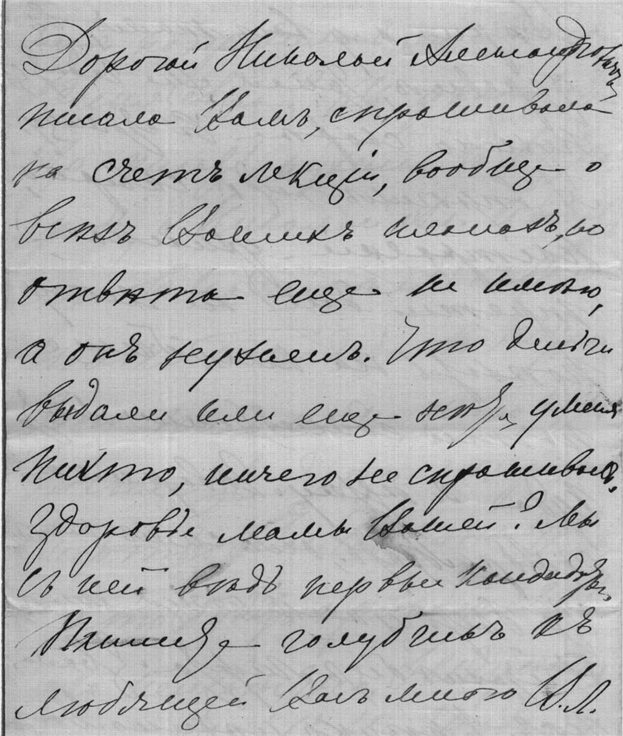 Дорогой Николай Александровичъ
писала Вамъ, спрашивала
на счетъ лекцiй, вообще о
всѣхъ Вашихъ планахъ, но
отвѣта еще не имѣю,
а онъ нуженъ. Что
выдали или еще нѣтъ, у меня
никто, ничего не спрашивалъ.
Здоровье мамы Вашей? Мы
съ ней вѣдь первые кандидаты
Пишите голубчикъ къ
любящей Васъ много В. Л.